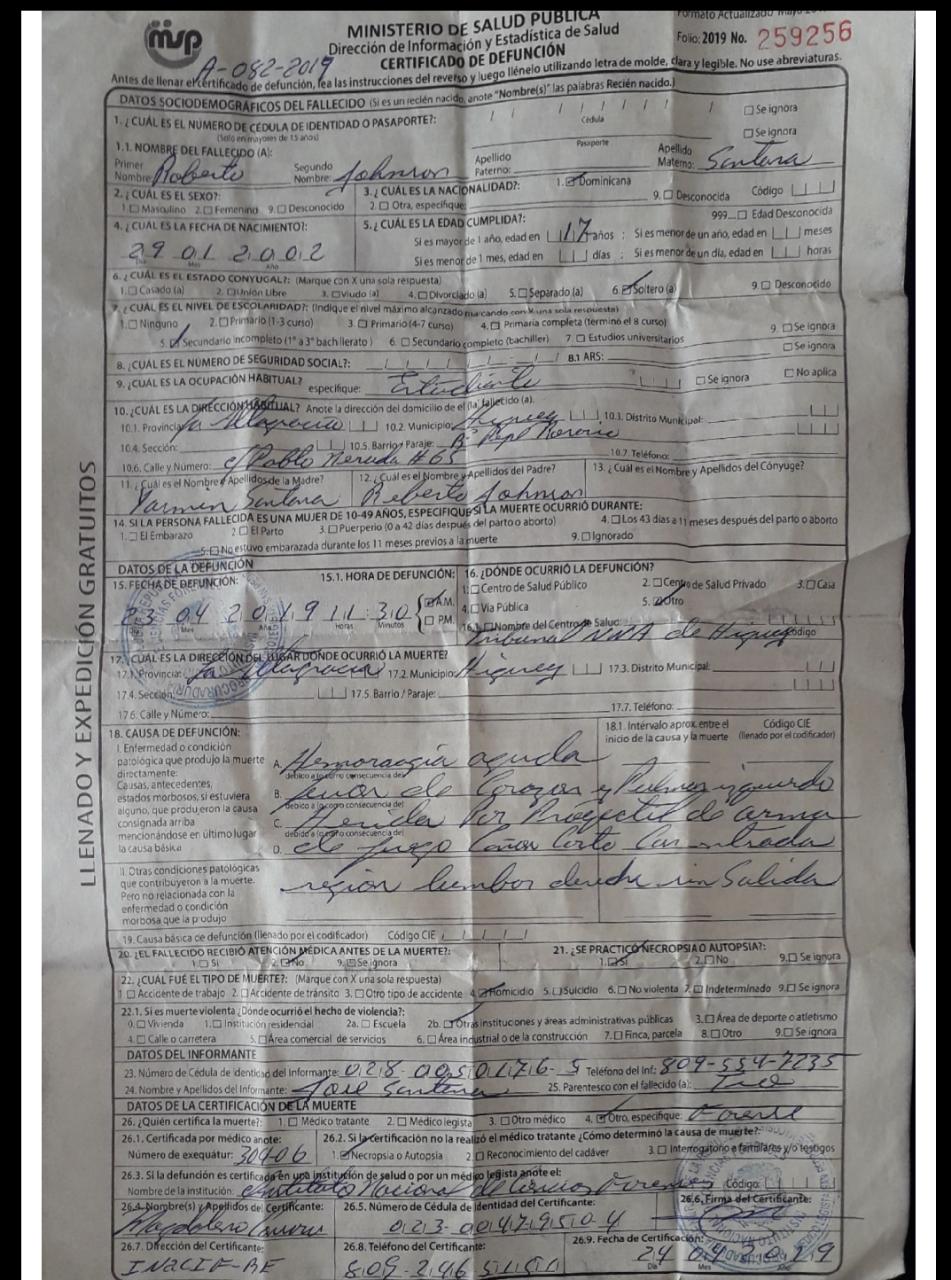 MINISTERIO DE SALUD PUBLICA
Formato Actualizado
msp
Dirección de Información y Estadística de Salud
Folio: 2019 No. 259256
CERTIFICADO DE DEFUNCIÓN
A-082-2019
Antes de llenar el certificado de defunción, lea las instrucciones del reverso y luego llénelo utilizando letra de molde, clara y legible. No use abreviaturas.
DATOS SOCIODEMOGRÁFICOS DEL FALLECIDO (Si es un recién nacido, anote "Nombre(s)" las palabras Recién nacido.)
1. ¿CUÁL ES EL NÚMERO DE CÉDULA DE IDENTIDAD O PASAPORTE?: Cédula Se ignora
(Solo en mayores de 15 años) Pasaporte Se ignora
1.1. NOMBRE DEL FALLECIDO (A):
Primer Nombre: Roberto Segundo Nombre: Johnson Apellido Paterno: Apellido Materno: Santana
2. ¿CUÁL ES EL SEXO? 3. ¿CUÁL ES LA NACIONALIDAD? 1. Dominicana
1. Masculino 2. Femenino 9. Desconocido 2. Otra, especifique: 9. Desconocida Código
4. ¿CUÁL ES LA FECHA DE NACIMIENTO?: 5. ¿CUÁL ES LA EDAD CUMPLIDA?: 999. Edad Desconocida
Si es mayor de 1 año, edad en 17 años ; Si es menor de un año, edad en meses
29 01 2002
Día Mes Año Si es menor de 1 mes, edad en días ; Si es menor de un día, edad en horas
6. ¿CUÁL ES EL ESTADO CONYUGAL?: (Marque con X una sola respuesta)
1. Casado (a) 2. Unión Libre 3. Viudo (a) 4. Divorciado (a) 5. Separado (a) 6. Soltero (a) 9. Desconocido
7. ¿CUÁL ES EL NIVEL DE ESCOLARIDAD?: (Indique el nivel máximo alcanzado marcando con X una sola respuesta)
1. Ninguno 2. Primario (1-3 curso) 3. Primario (4-7 curso) 4. Primaria completa (terminó el 8 curso) 9. Se ignora
5. Secundario incompleto (1° a 3° bachillerato) 6. Secundario completo (bachiller) 7. Estudios universitarios
8. ¿CUÁL ES EL NÚMERO DE SEGURIDAD SOCIAL?: 8.1 ARS: Se ignora
9. ¿CUÁL ES LA OCUPACIÓN HABITUAL? especifique: Estudiante Se ignora No aplica
10. ¿CUÁL ES LA DIRECCIÓN HABITUAL? Anote la dirección del domicilio de el (la) fallecido (a).
10.1. Provincia: La Altagracia 10.2. Municipio: Higuey 10.3. Distrito Municipal:
10.4. Sección: 10.5. Barrio / Paraje: 10.7. Teléfono:
10.6. Calle y Número: c/ Pablo Neruda # 65
11. ¿Cuál es el Nombre y Apellidos de la Madre? 12. ¿Cuál es el Nombre y Apellidos del Padre? 13. ¿Cuál es el Nombre y Apellidos del Cónyuge?
Yasmin Santana Roberto Johnson
14. SI LA PERSONA FALLECIDA ES UNA MUJER DE 10-49 AÑOS, ESPECIFIQUE SI LA MUERTE OCURRIÓ DURANTE:
1. El Embarazo 2. El Parto 3. Puerperio (0 a 42 días después del parto o aborto) 4. Los 43 días a 11 meses después del parto o aborto
5. No estuvo embarazada durante los 11 meses previos a la muerte 9. Ignorado
DATOS DE LA DEFUNCIÓN
15. FECHA DE DEFUNCIÓN: 15.1. HORA DE DEFUNCIÓN: 16. ¿DÓNDE OCURRIÓ LA DEFUNCIÓN?
1. Centro de Salud Público 2. Centro de Salud Privado 3. Casa
23 04 2019 11:30 A.M. 4. Vía Pública 5. Otro
Día Mes Año Horas Minutos P.M. 16.1. Nombre del Centro de Salud: Código
Tribunal NNA de Higuey
17. ¿CUÁL ES LA DIRECCIÓN DEL LUGAR DONDE OCURRIÓ LA MUERTE?
17.1. Provincia: La Altagracia 17.2. Municipio: Higuey 17.3. Distrito Municipal:
17.4. Sección: 17.5. Barrio / Paraje:
17.6. Calle y Número: 17.7. Teléfono:
18. CAUSA DE DEFUNCIÓN: 18.1. Intervalo aprox. entre el inicio de la causa y la muerte Código CIE (llenado por el codificador)
I. Enfermedad o condición patológica que produjo la muerte directamente: A. Hemorragia aguda
debido a (o como consecuencia de)
Causas, antecedentes, estados morbosos, si estuviera alguno, que produjeron la causa consignada arriba mencionándose en último lugar la causa básica
B. de Corazon y Pulmon izquierdo
debido a (o como consecuencia de)
C. Herida Por Proyectil de arma
debido a (o como consecuencia de)
D. de fuego Cañon Corto Con entrada
II. Otras condiciones patológicas que contribuyeron a la muerte. Pero no relacionada con la enfermedad o condición morbosa que la produjo
región lumbar derecha sin Salida
19. Causa básica de defunción (llenado por el codificador) Código CIE
20. ¿EL FALLECIDO RECIBIÓ ATENCIÓN MÉDICA ANTES DE LA MUERTE?: 21. ¿SE PRACTICÓ NECROPSIA O AUTOPSIA?:
1. Si 2. No 9. Se ignora 1. Si 2. No 9. Se ignora
22. ¿CUÁL FUÉ EL TIPO DE MUERTE?: (Marque con X una sola respuesta)
1 Accidente de trabajo 2. Accidente de tránsito 3. Otro tipo de accidente 4. Homicidio 5. Suicidio 6. No violenta 7. Indeterminado 9. Se ignora
22.1. Si es muerte violenta ¿Dónde ocurrió el hecho de violencia?:
0. Vivienda 1. Institución residencial 2a. Escuela 2b. Otras instituciones y áreas administrativas públicas 3. Área de deporte o atletismo
4. Calle o carretera 5. Área comercial de servicios 6. Área industrial o de la construcción 7. Finca, parcela 8. Otro 9. Se ignora
DATOS DEL INFORMANTE
23. Número de Cédula de identidad del Informante: 028-0050176-5 Teléfono del Inf.: 809-554-7235
24. Nombre y Apellidos del Informante: Jose Santana 25. Parentesco con el fallecido (a): Tio
DATOS DE LA CERTIFICACIÓN DE LA MUERTE
26. ¿Quién certifica la muerte?: 1. Médico tratante 2. Médico legista 3. Otro médico 4. Otro, especifique: Forense
26.1. Certificada por médico anote: 26.2. Si la certificación no la realizó el médico tratante ¿Cómo determinó la causa de muerte?:
Número de exequátur: 304-06 1. Necropsia o Autopsia 2. Reconocimiento del cadáver 3. Interrogatorio a familiares y/o testigos
26.3. Si la defunción es certificada en una institución de salud o por un médico legista anote el:
Nombre de la institución: Instituto Nacional de Ciencias Forenses Código:
26.4. Nombre(s) y Apellidos del Certificante: 26.5. Número de Cédula de Identidad del Certificante: 26.6. Firma del Certificante:
023-0047950-4
26.7. Dirección del Certificante: 26.8. Teléfono del Certificante: 26.9. Fecha de Certificación:
INACIF-RE 809-246 24 04 2019
Día Mes Año
LLENADO Y EXPEDICIÓN GRATUITOS